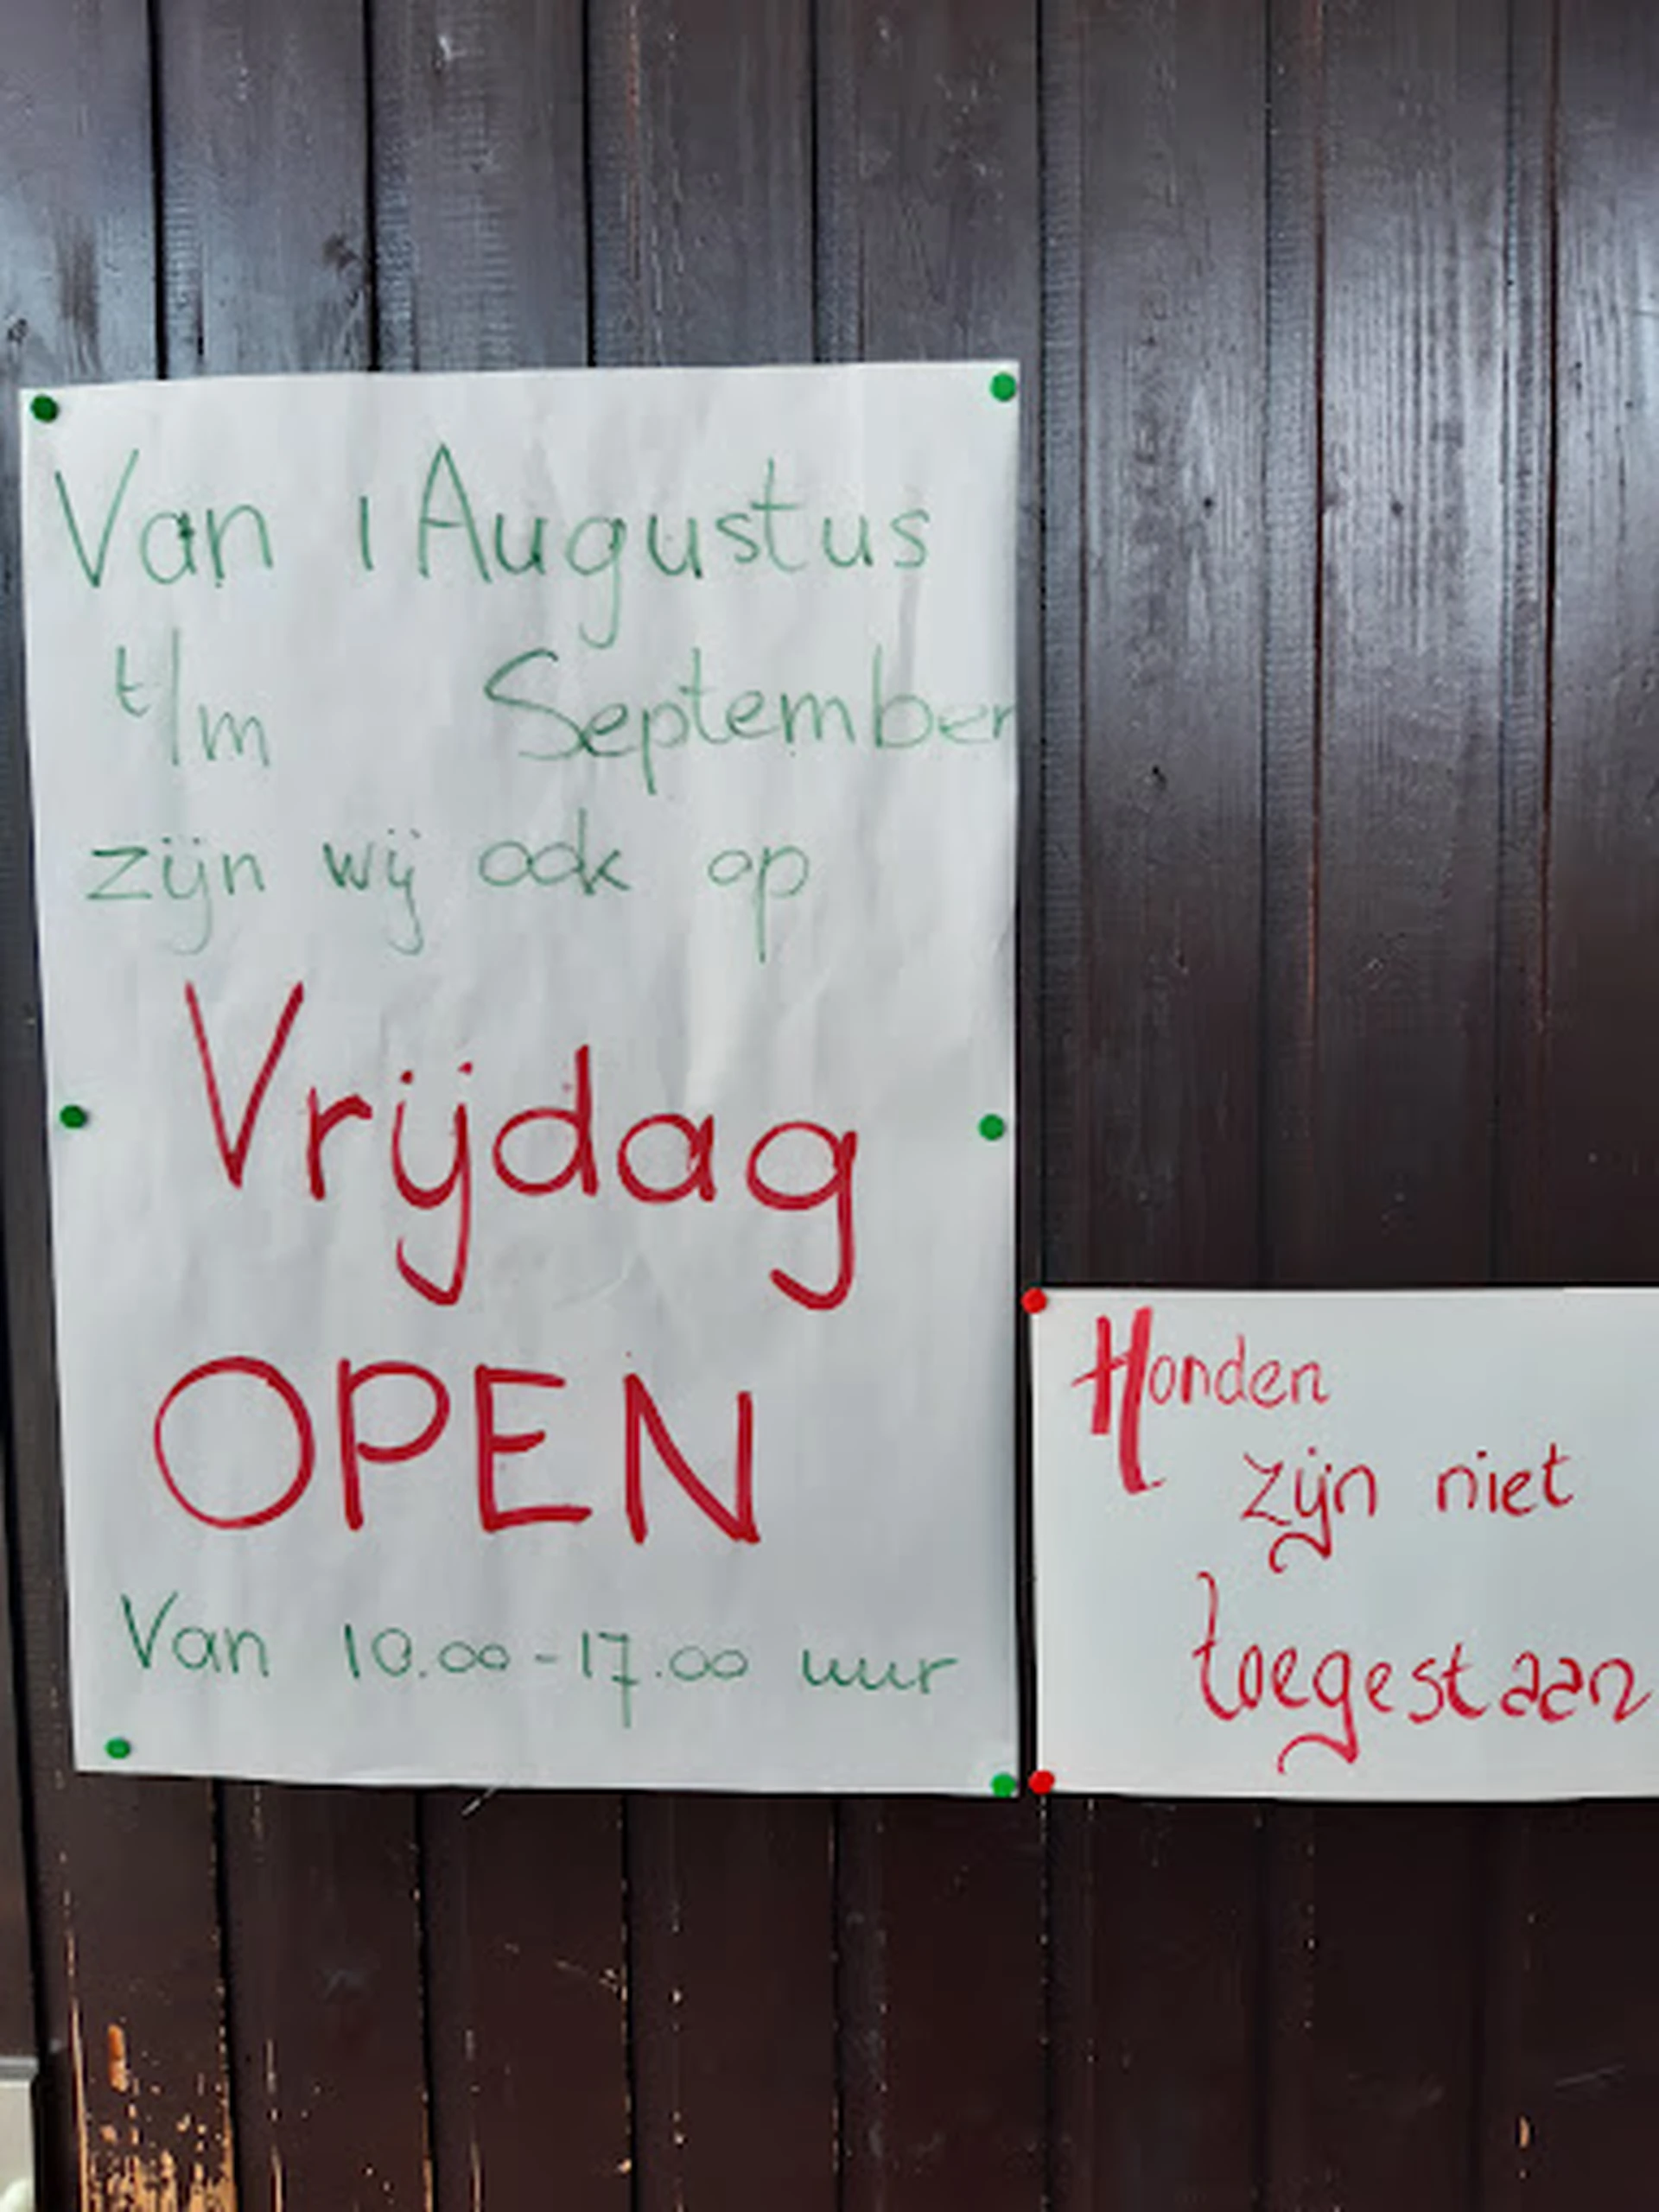 Van 1 Augustus
t/m September
zijn wij ook op
Vrijdag
OPEN
Van 10.00-17.00 uur
Honden
zijn niet
toegestaan